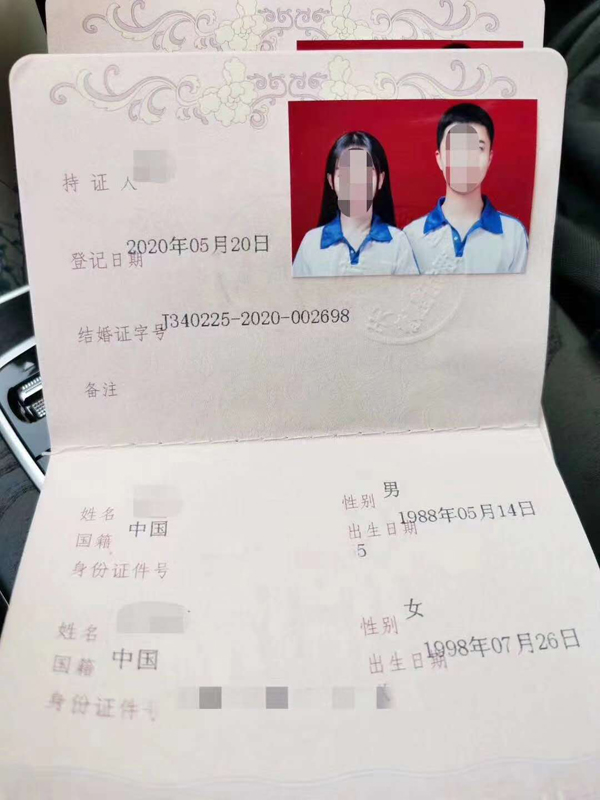 持证人
登记日期 2020年05月20日
结婚证字号 J340225-2020-002698
备注
姓名 性别 男
国籍 中国 出生日期 1988年05月14日
身份证件号 5
姓名 性别 女
国籍 中国 出生日期 1998年07月26日
身份证件号